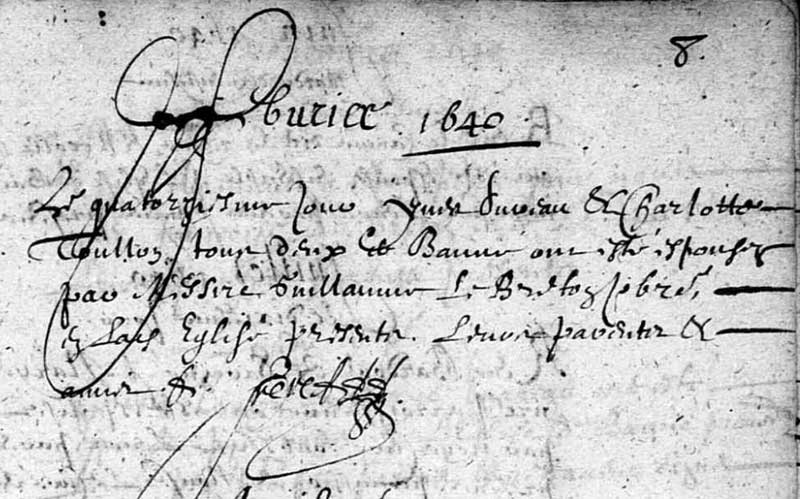 8.
Febvrier 1640
Le quatorziesme jour Yves & Charlotte
tous deux de ont esté espousez
par Messire Guillaume Le Breton pbre,
en Eglise presents. Leurs parents &
amis &.